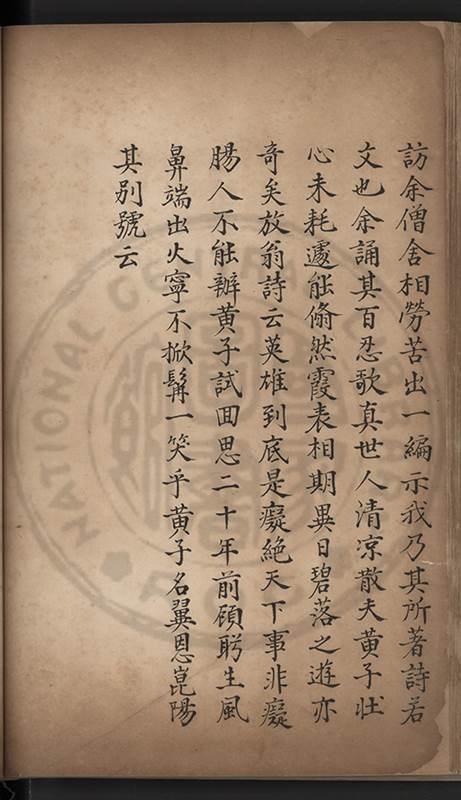 訪余僧舍相勞苦出一編示我乃其所著詩若
文也余誦其百忍歌真世人清凉散夫黄子壮
心未耗遽能翛然霞表相期異日碧落之遊亦
奇矣放翁詩云英雄到底是癡絶天下事非癡
腸人不能辦黄子試囬思二十年前顧盻生風
鼻端出火寧不掀髯一笑乎黄子名翼恩崑陽
其别號云
NATIONAL CENTRAL